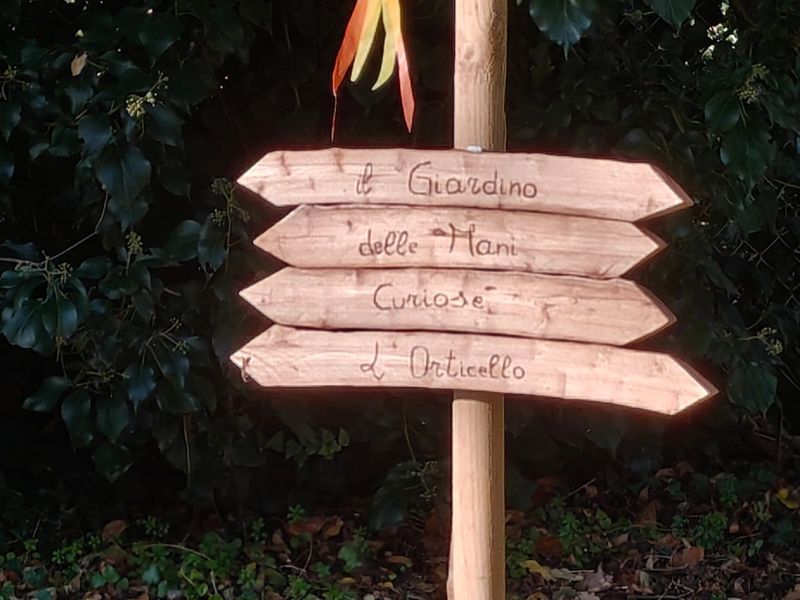 il Giardino
delle Mani
Curiose
L'Orticello